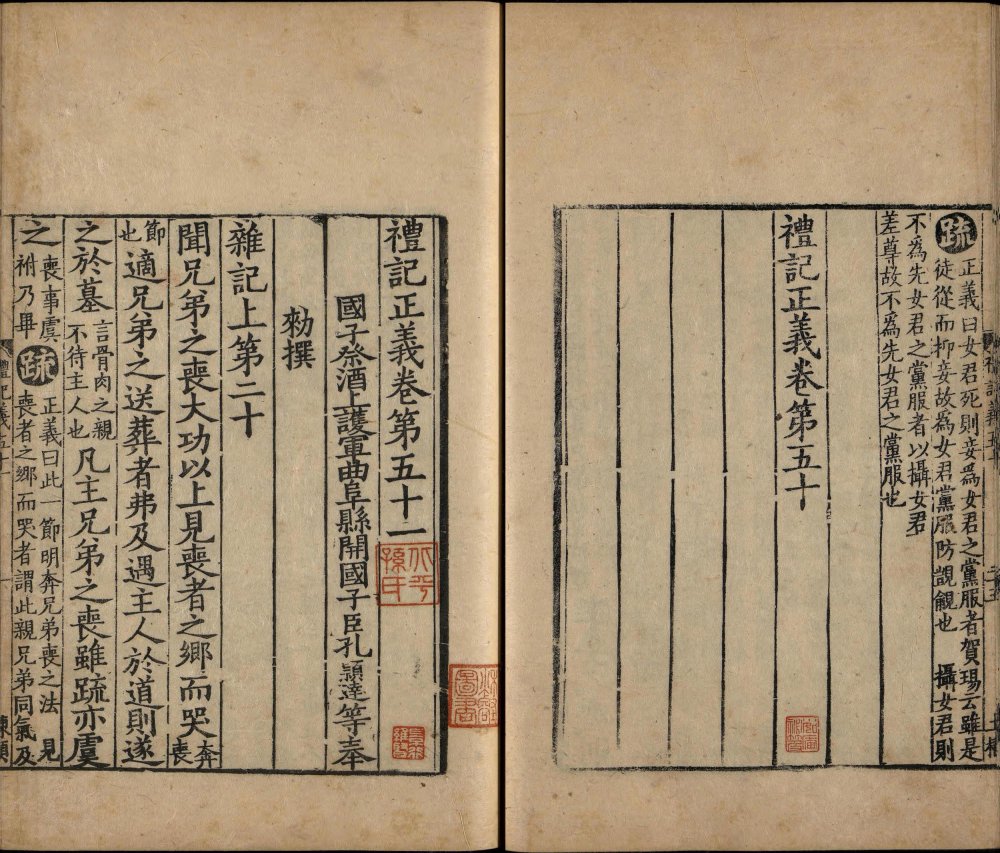 疏
正義曰女君死則妾爲女君之黨服者賀瑒云雖是
徒從而抑妾故爲女君黨服防覬覦也 攝女君則
不爲先女君之黨服者以攝女君
差尊故不爲先女君之黨服也
禮記正義卷第五十
禮記正義卷第五十一
國子祭酒上護軍曲阜縣開國子臣孔穎達等奉
勑撰
雜記上第二十
聞兄弟之喪大功以上見喪者之鄉而哭奔喪
節也適兄弟之送葬者弗及遇主人於道則遂
之於墓言骨肉之親不待主人也凡主兄弟之喪雖疏亦虞
之喪事虞祔乃畢疏正義曰此一節明奔兄弟喪之法 見喪者之鄉而哭者謂此親兄弟同氣及
孫氏
圖書